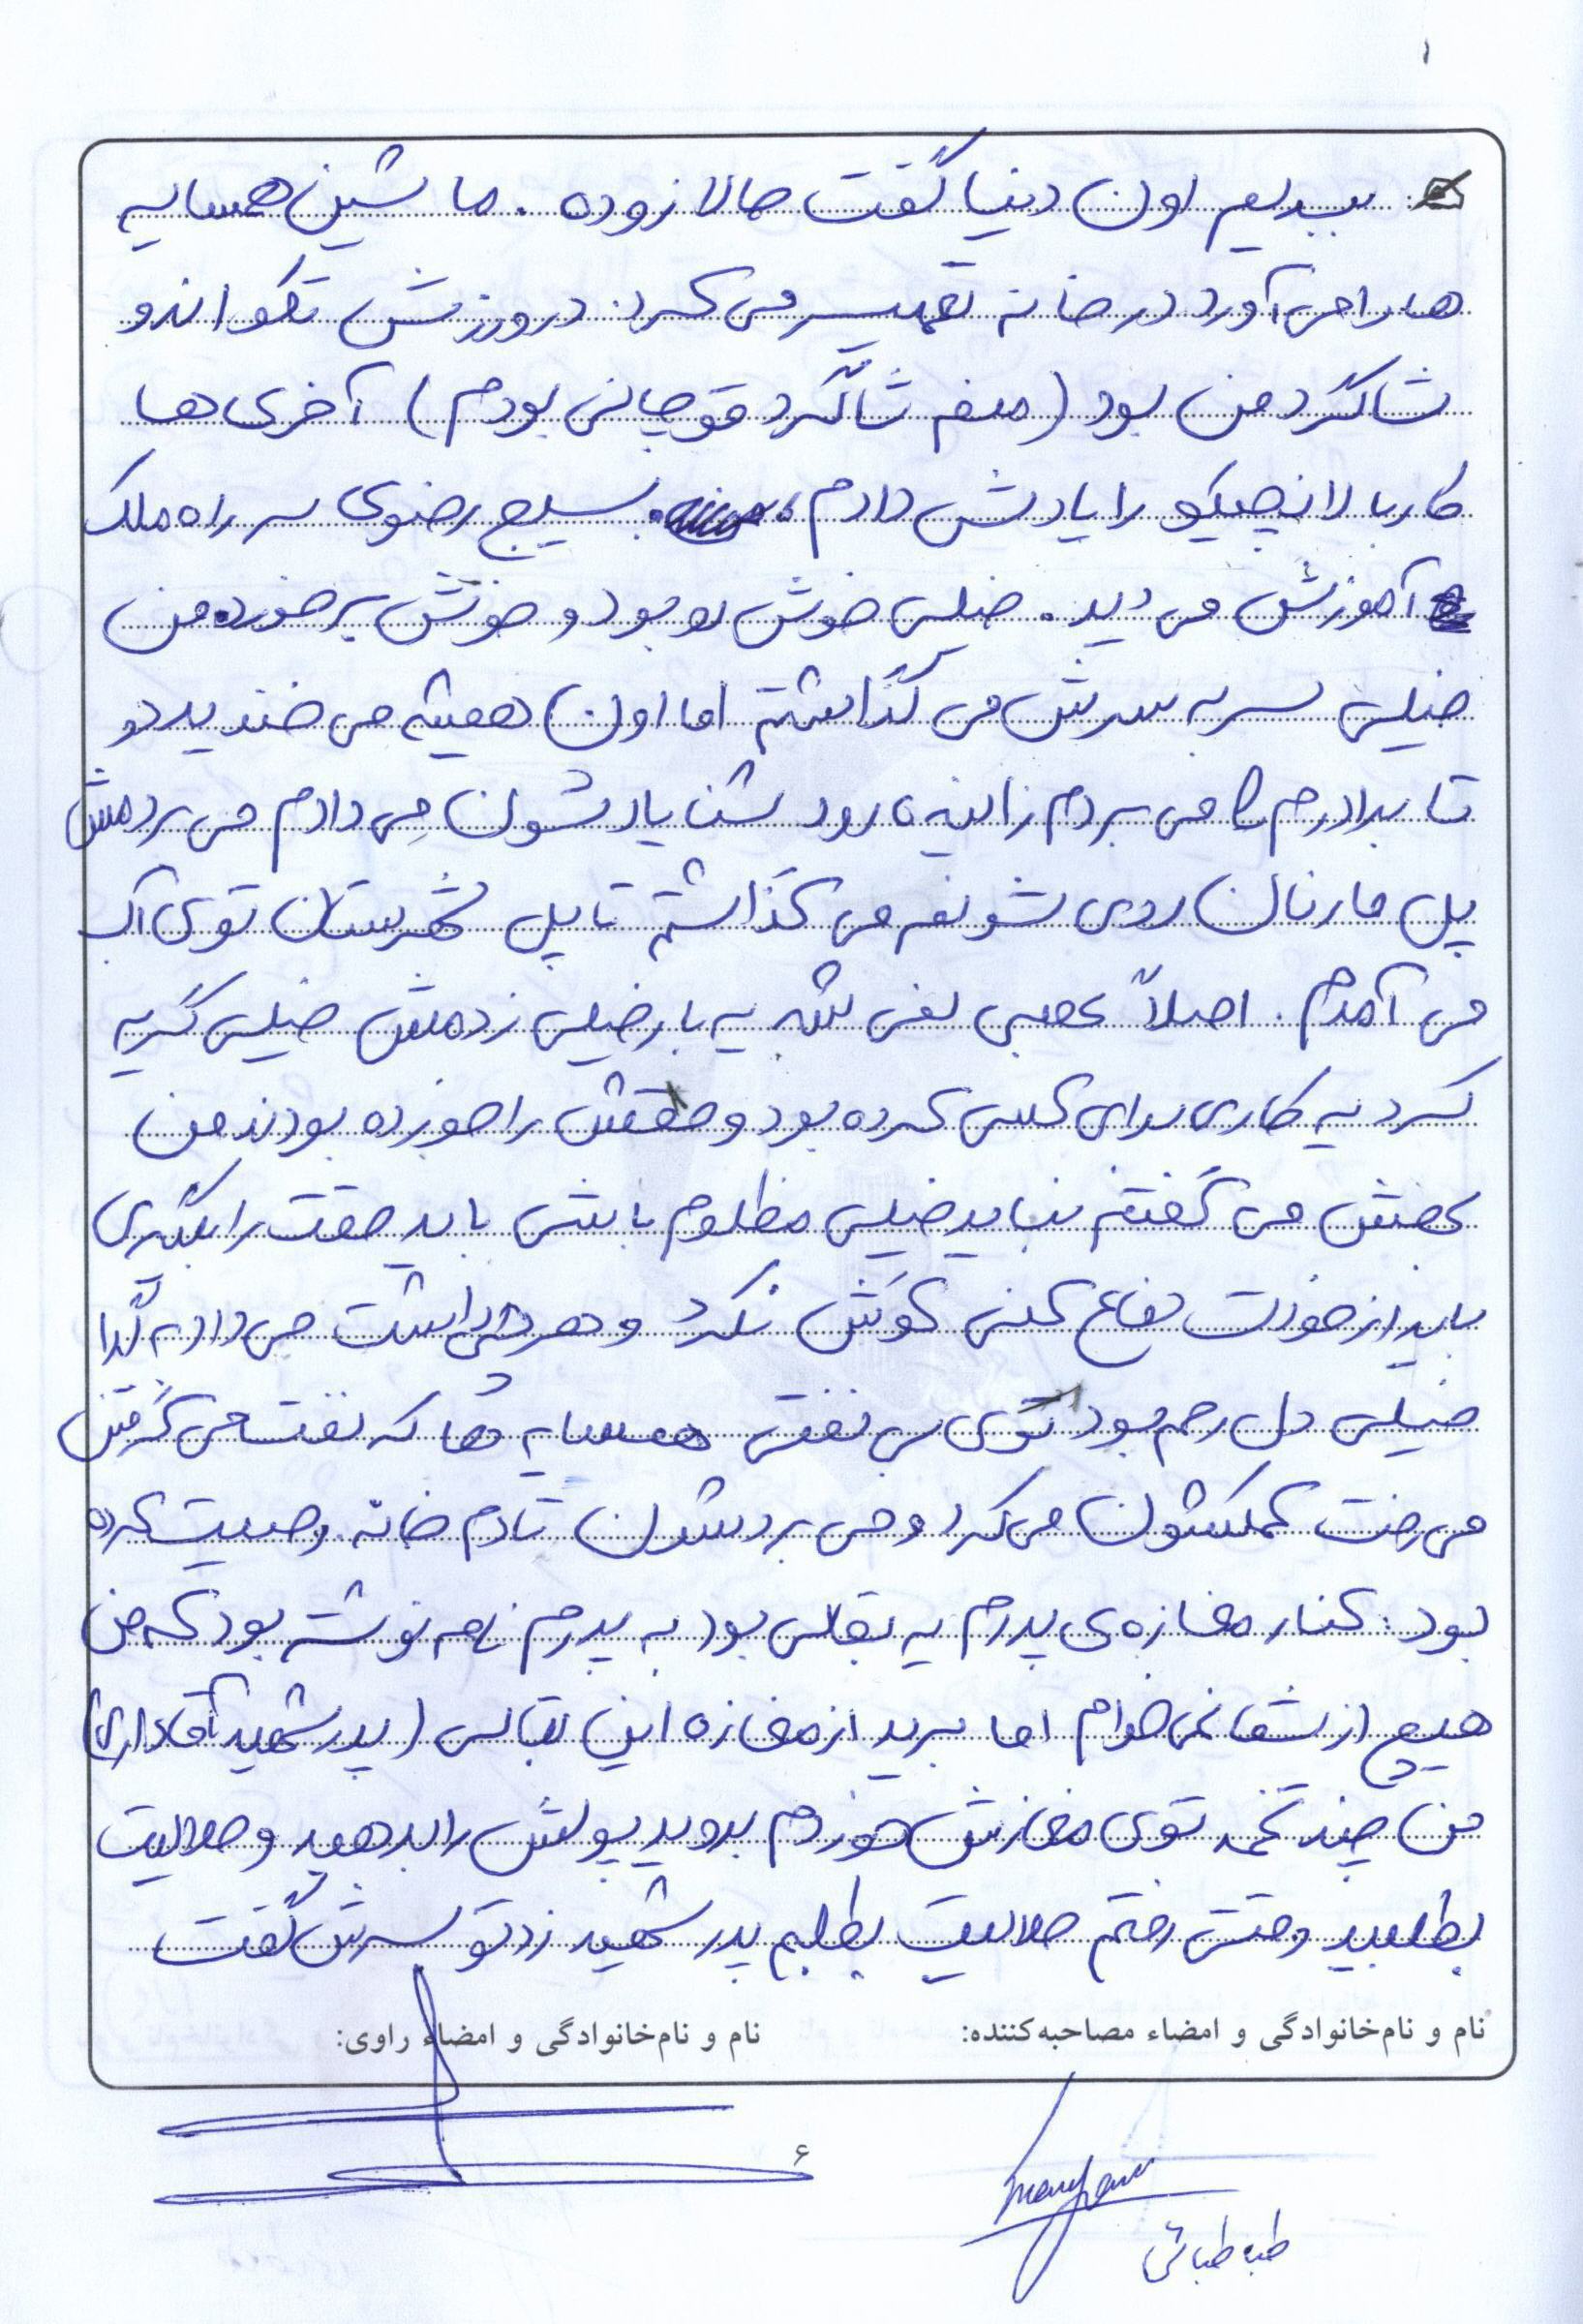 ۱
ببریم اون دنیا گفت حالا زوده. ماشین همسایه
ها را می آورد در خانه تعمیر می کرد. در ورزش تکواندو
شاگرد من بود (منم شاگرد قوچانی بودم) آخری ها
کار با لانچیکو را یادش دادم، بسیج رضوی سر راه ملک
آموزش می دید. خیلی خوش رو بود و خوش برخورد. من
خیلی سر به سرش می گذاشتم اما اون همیشه می خندید دو
تا برادرم را می بردم زاینده رود شنا یادشون می دادم می بردمش
پل مارنان روی شونم می گذاشتم تا پل شهرستان توی آب
می آمدم. اصلاً عصبی نمی شد یه بار خیلی زدمش خیلی گریه
کرد یه کاری برای کسی کرده بود و حقش را خورده بودند من
بهش می گفتم نباید خیلی مظلوم باشی باید حقت را بگیری
باید از خودت دفاع کنی گوش نکرد و هر چی داشت می داد به گدا
خیلی دل رحم بود توی بی نفتی همسایه ها که نفت می گرفتن
می رفت کمکشون می کرد و می بردشون تا دم خانه. وصیت کرده
بود: کنار مغازه ی پدرم یه بقالی بود به پدرم نامه نوشته بود که من
هیچ از شما نمی خوام اما برید از مغازه این بقالی (پدر شهید
من چند تخمه توی مغازش خوردم بروید پولش را بدهید و حلالیت
بطلبید وقتی رفتم حلالیت بطلبم پدر شهید زد تو سرش گفت
نام و نام‌خانوادگی و امضاء مصاحبه‌کننده:
نام و نام‌خانوادگی و امضاء راوی:
۶
طباطبائی